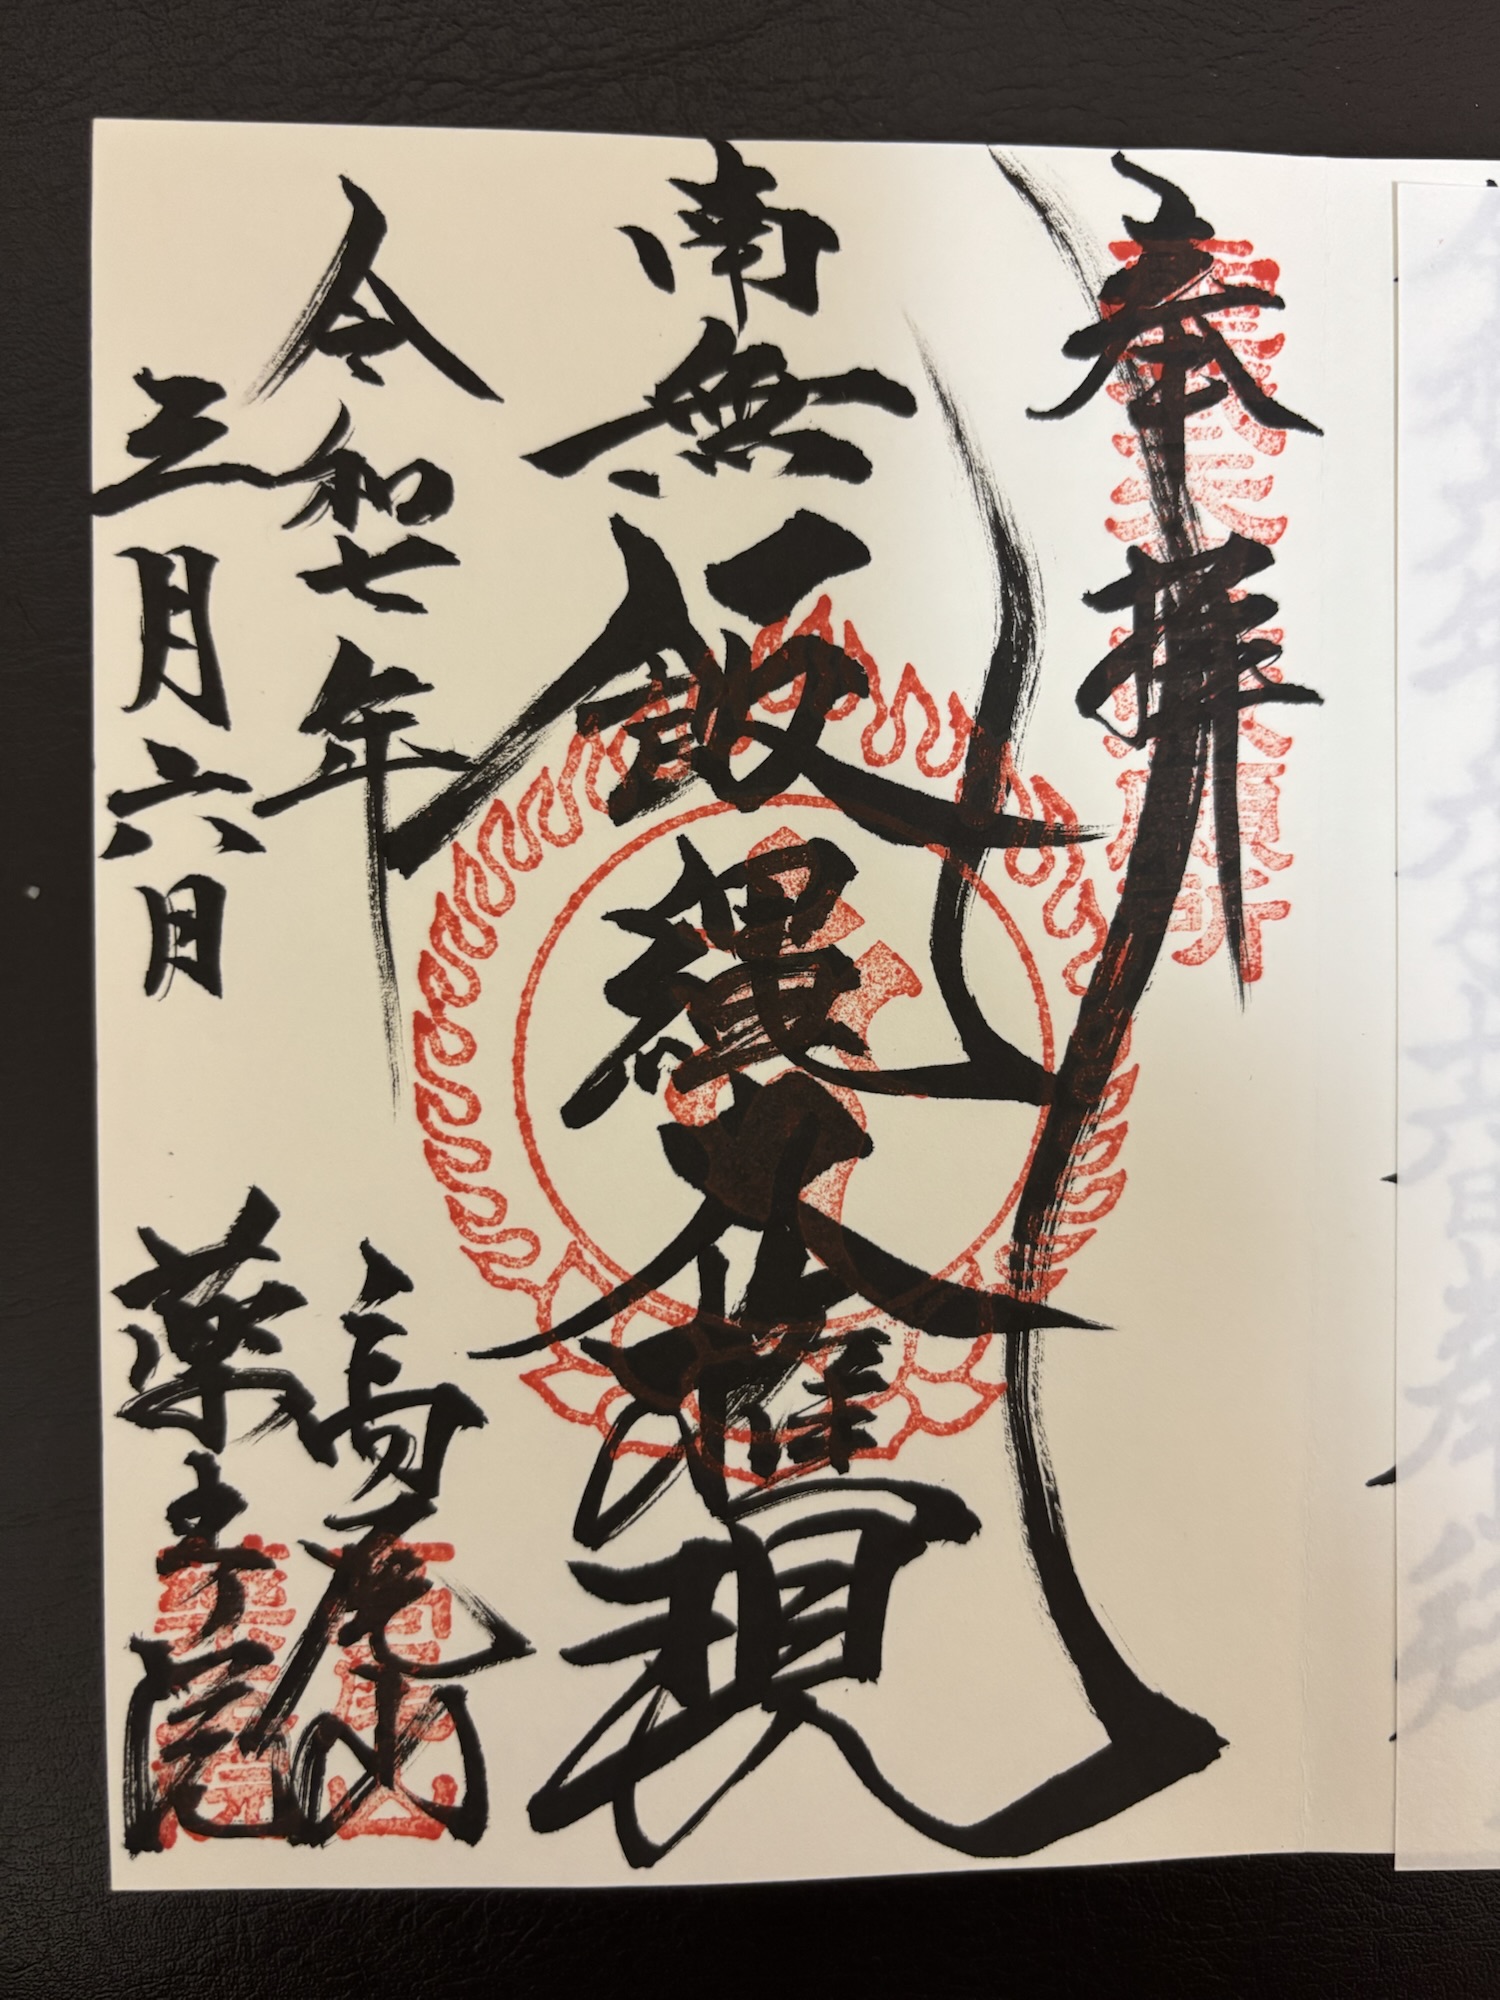 奉拝
南無飯縄大権現
令和七年
三月六日
高尾山
薬王院
高尾山
薬王院